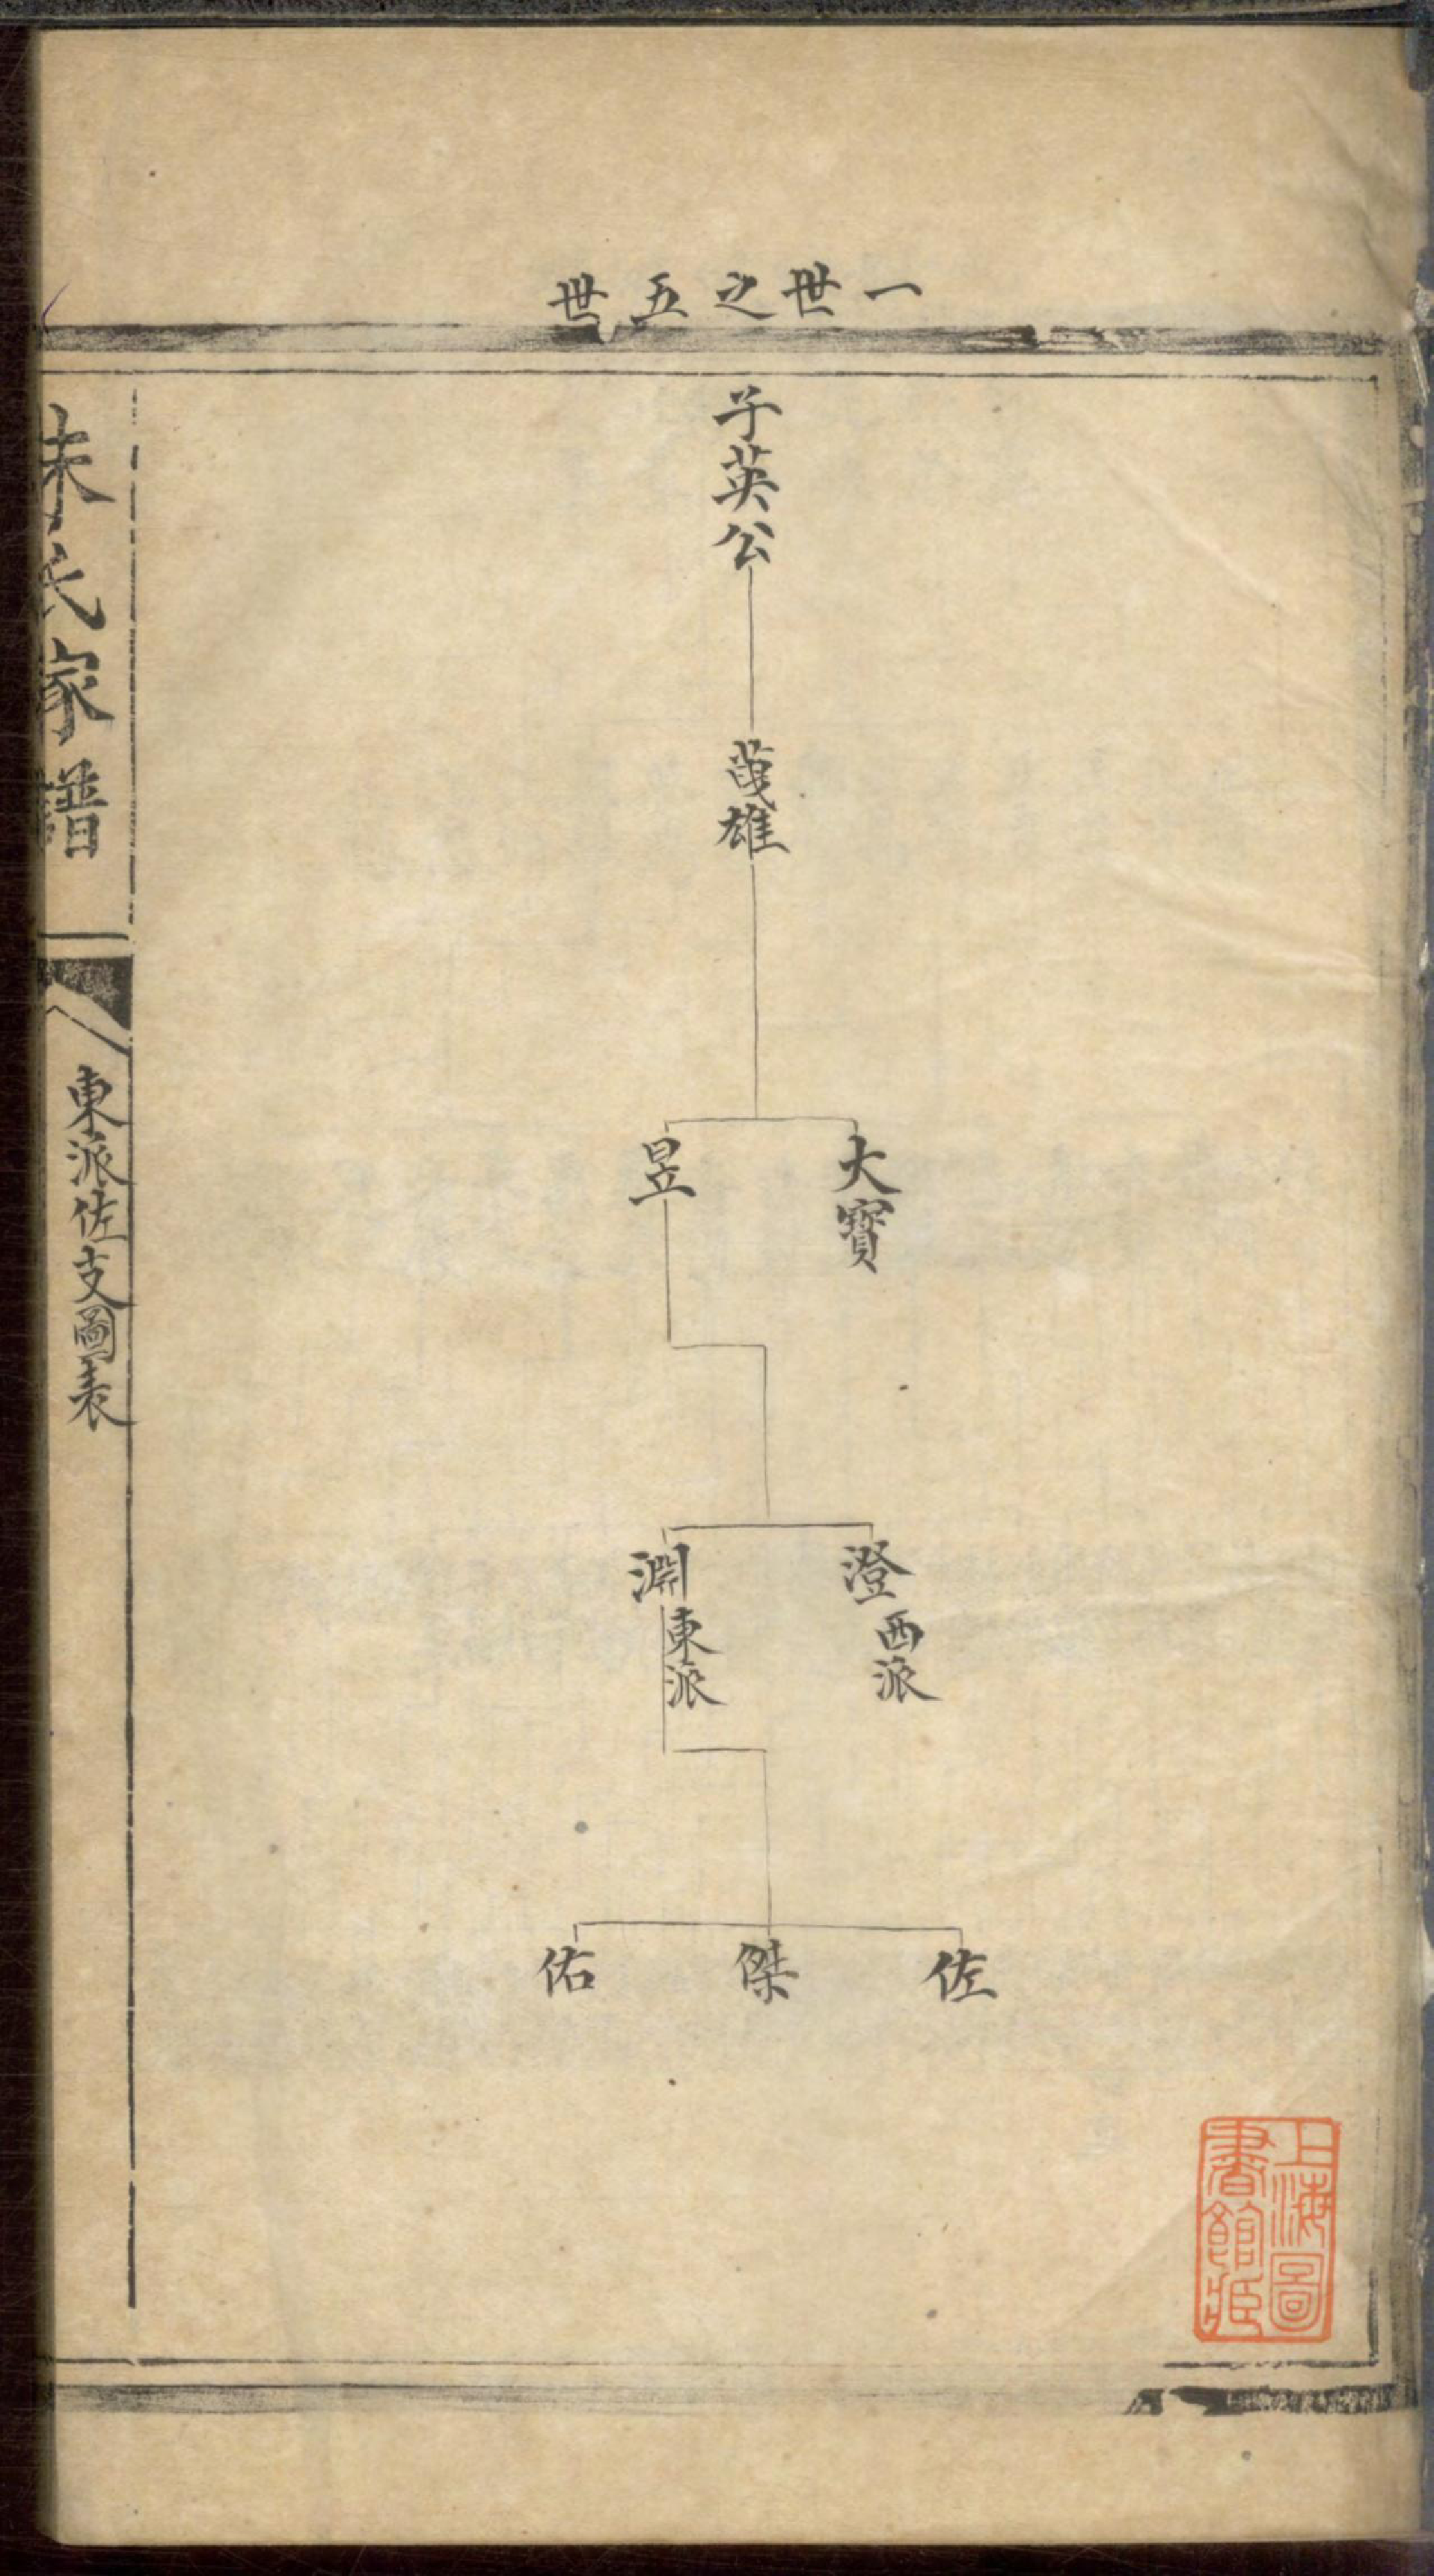 一世之五世
子英公
雄
大寳
昱
澄西派
淵東派
佐
傑
佑
朱氏家譜
東派佐支圖表
上海圖書館藏